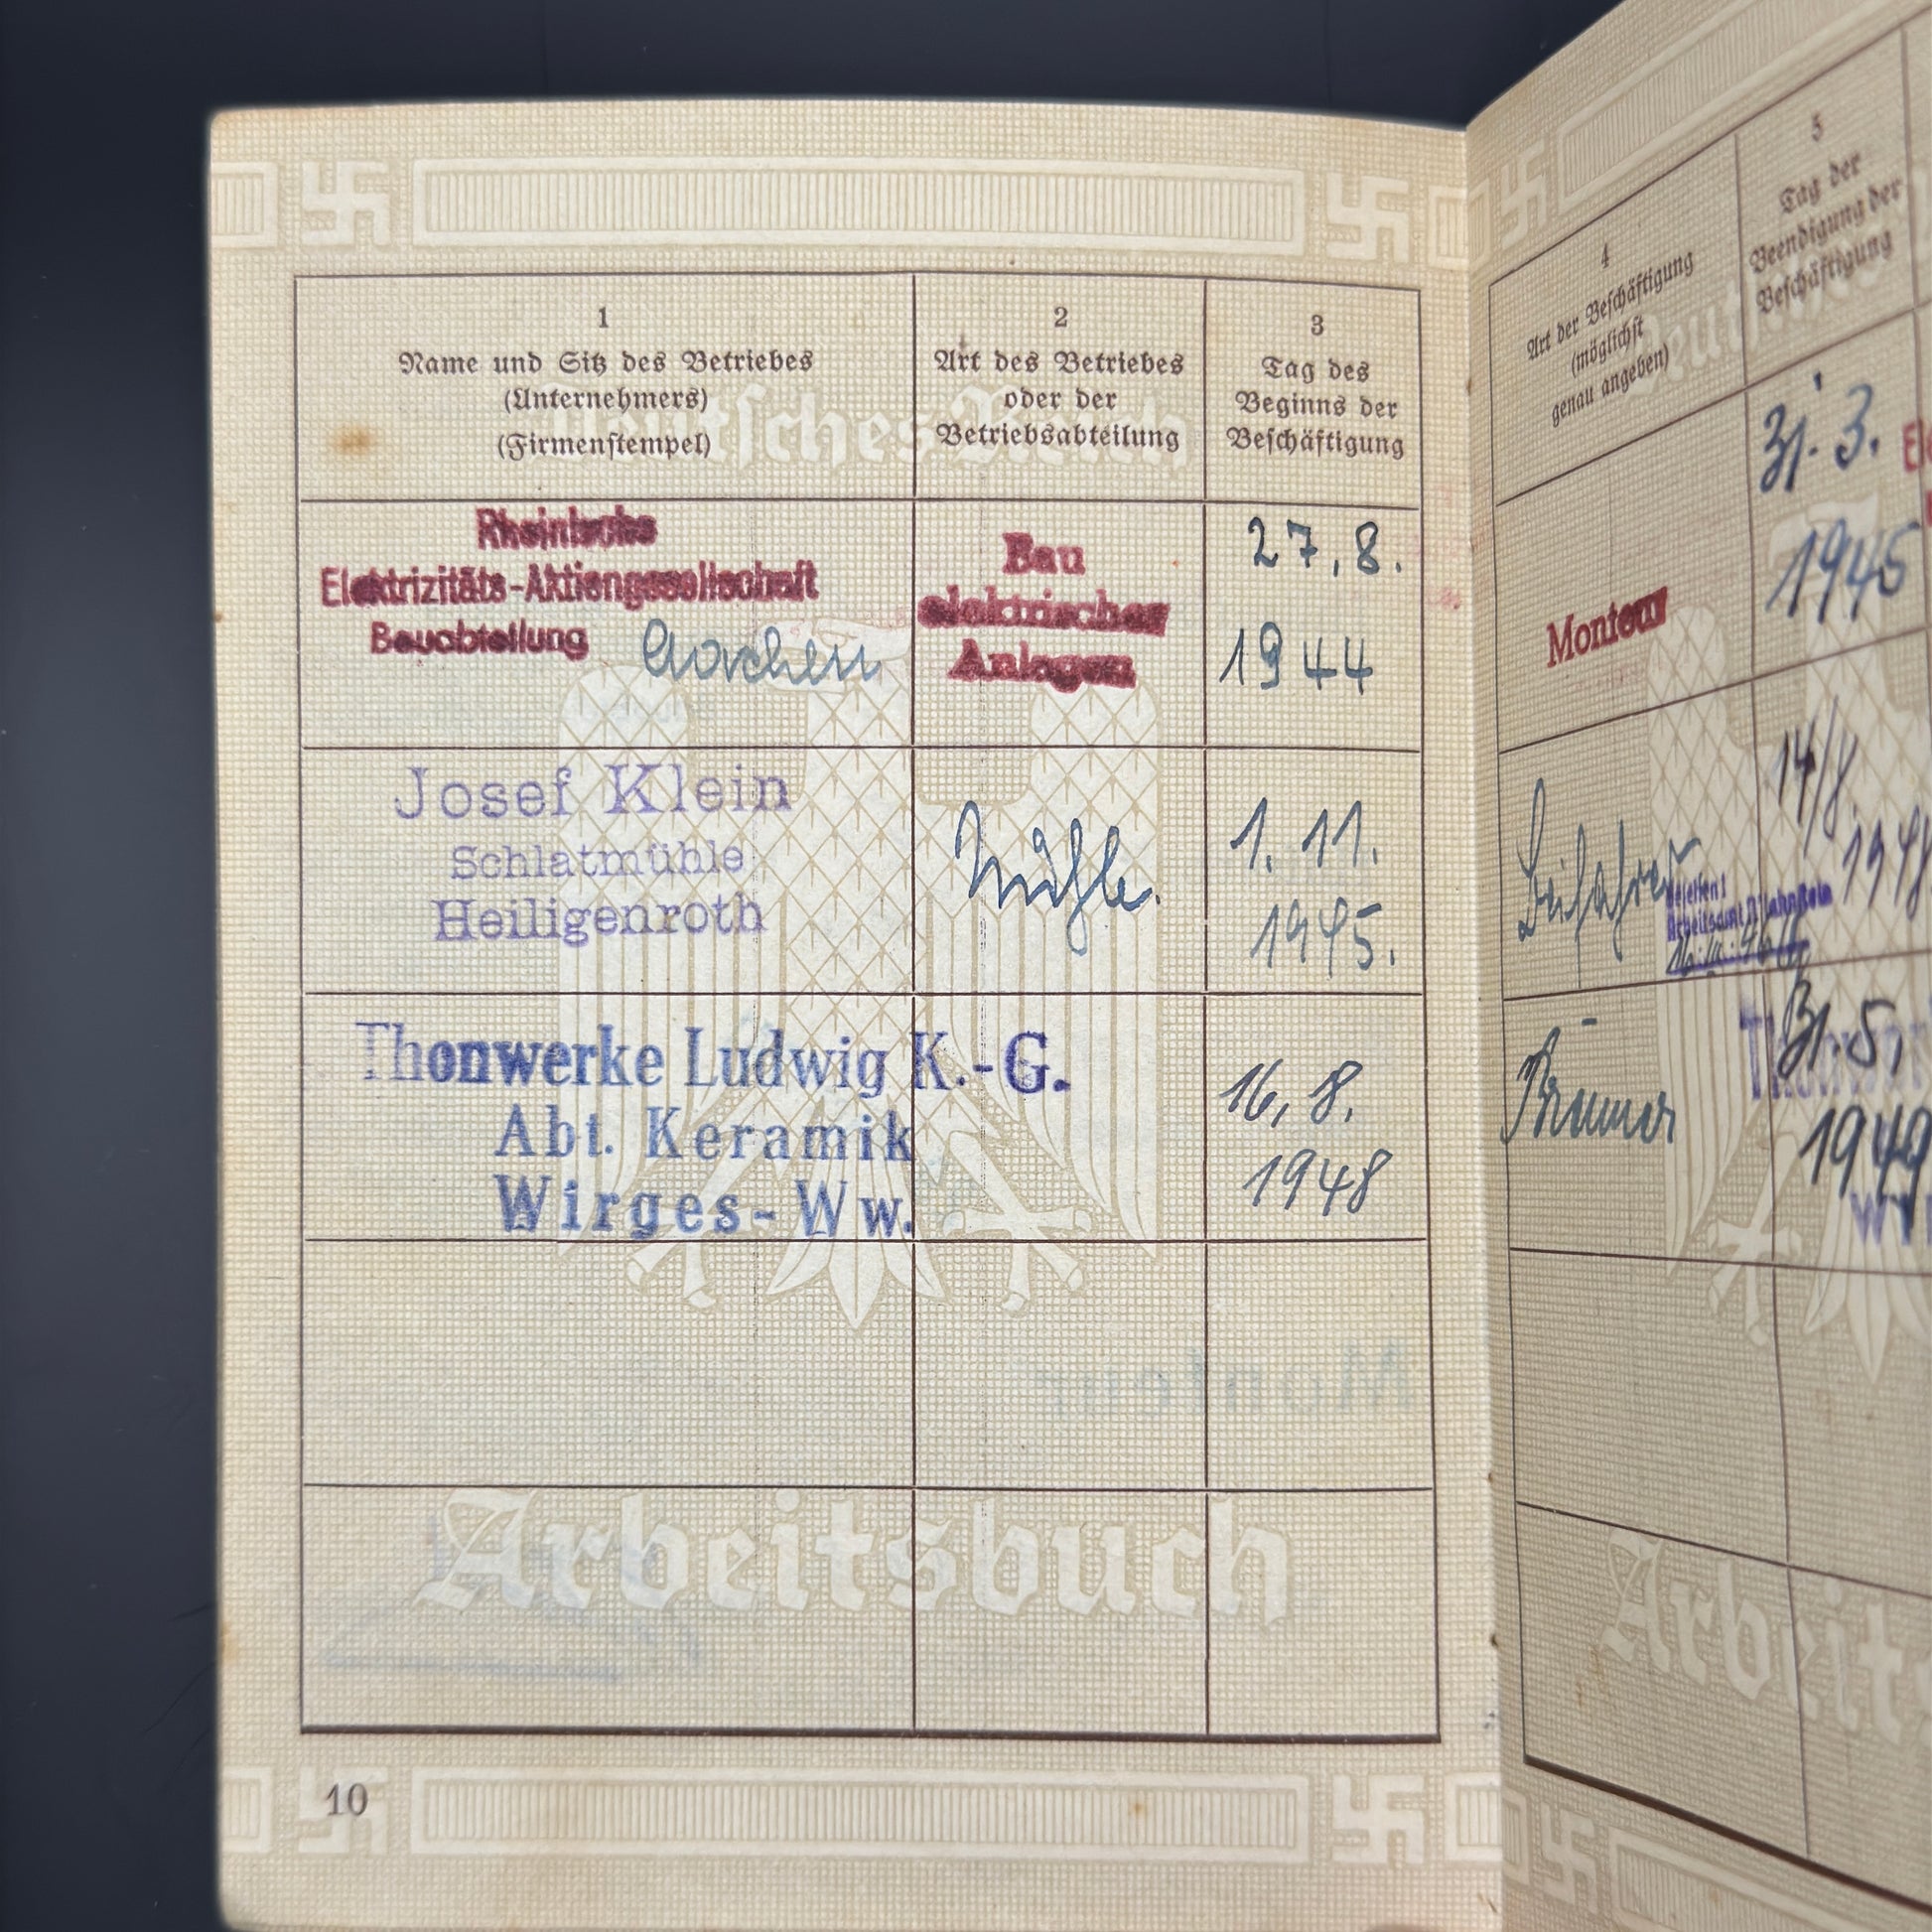 1
Name und Sitz des Betriebes
(Unternehmers)
(Firmenstempel)
2
Art des Betriebes
oder der
Betriebsabteilung
3
Tag des
Beginns der
Beschäftigung
Rheinische
Elektrizitäts-Aktiengesellschaft
Bauabteilung Aachen
Bau
elektrischer
Anlagen
27.8.
1944
Josef Klein
Schlatmühle
Heiligenroth
Mühle.
1. 11.
1945.
Thonwerke Ludwig K.-G.
Abt. Keramik
Wirges-Ww.
16.8.
1948
Deutsches Reich
Arbeitsbuch
10
4
Art der Beschäftigung
(möglichst
genau angeben)
5
Tag der
Beendigung der
Beschäftigung
Monteur
31.3.
1945
Beifahrer
14/8.
1948
Gesehen!
31.5.
1949